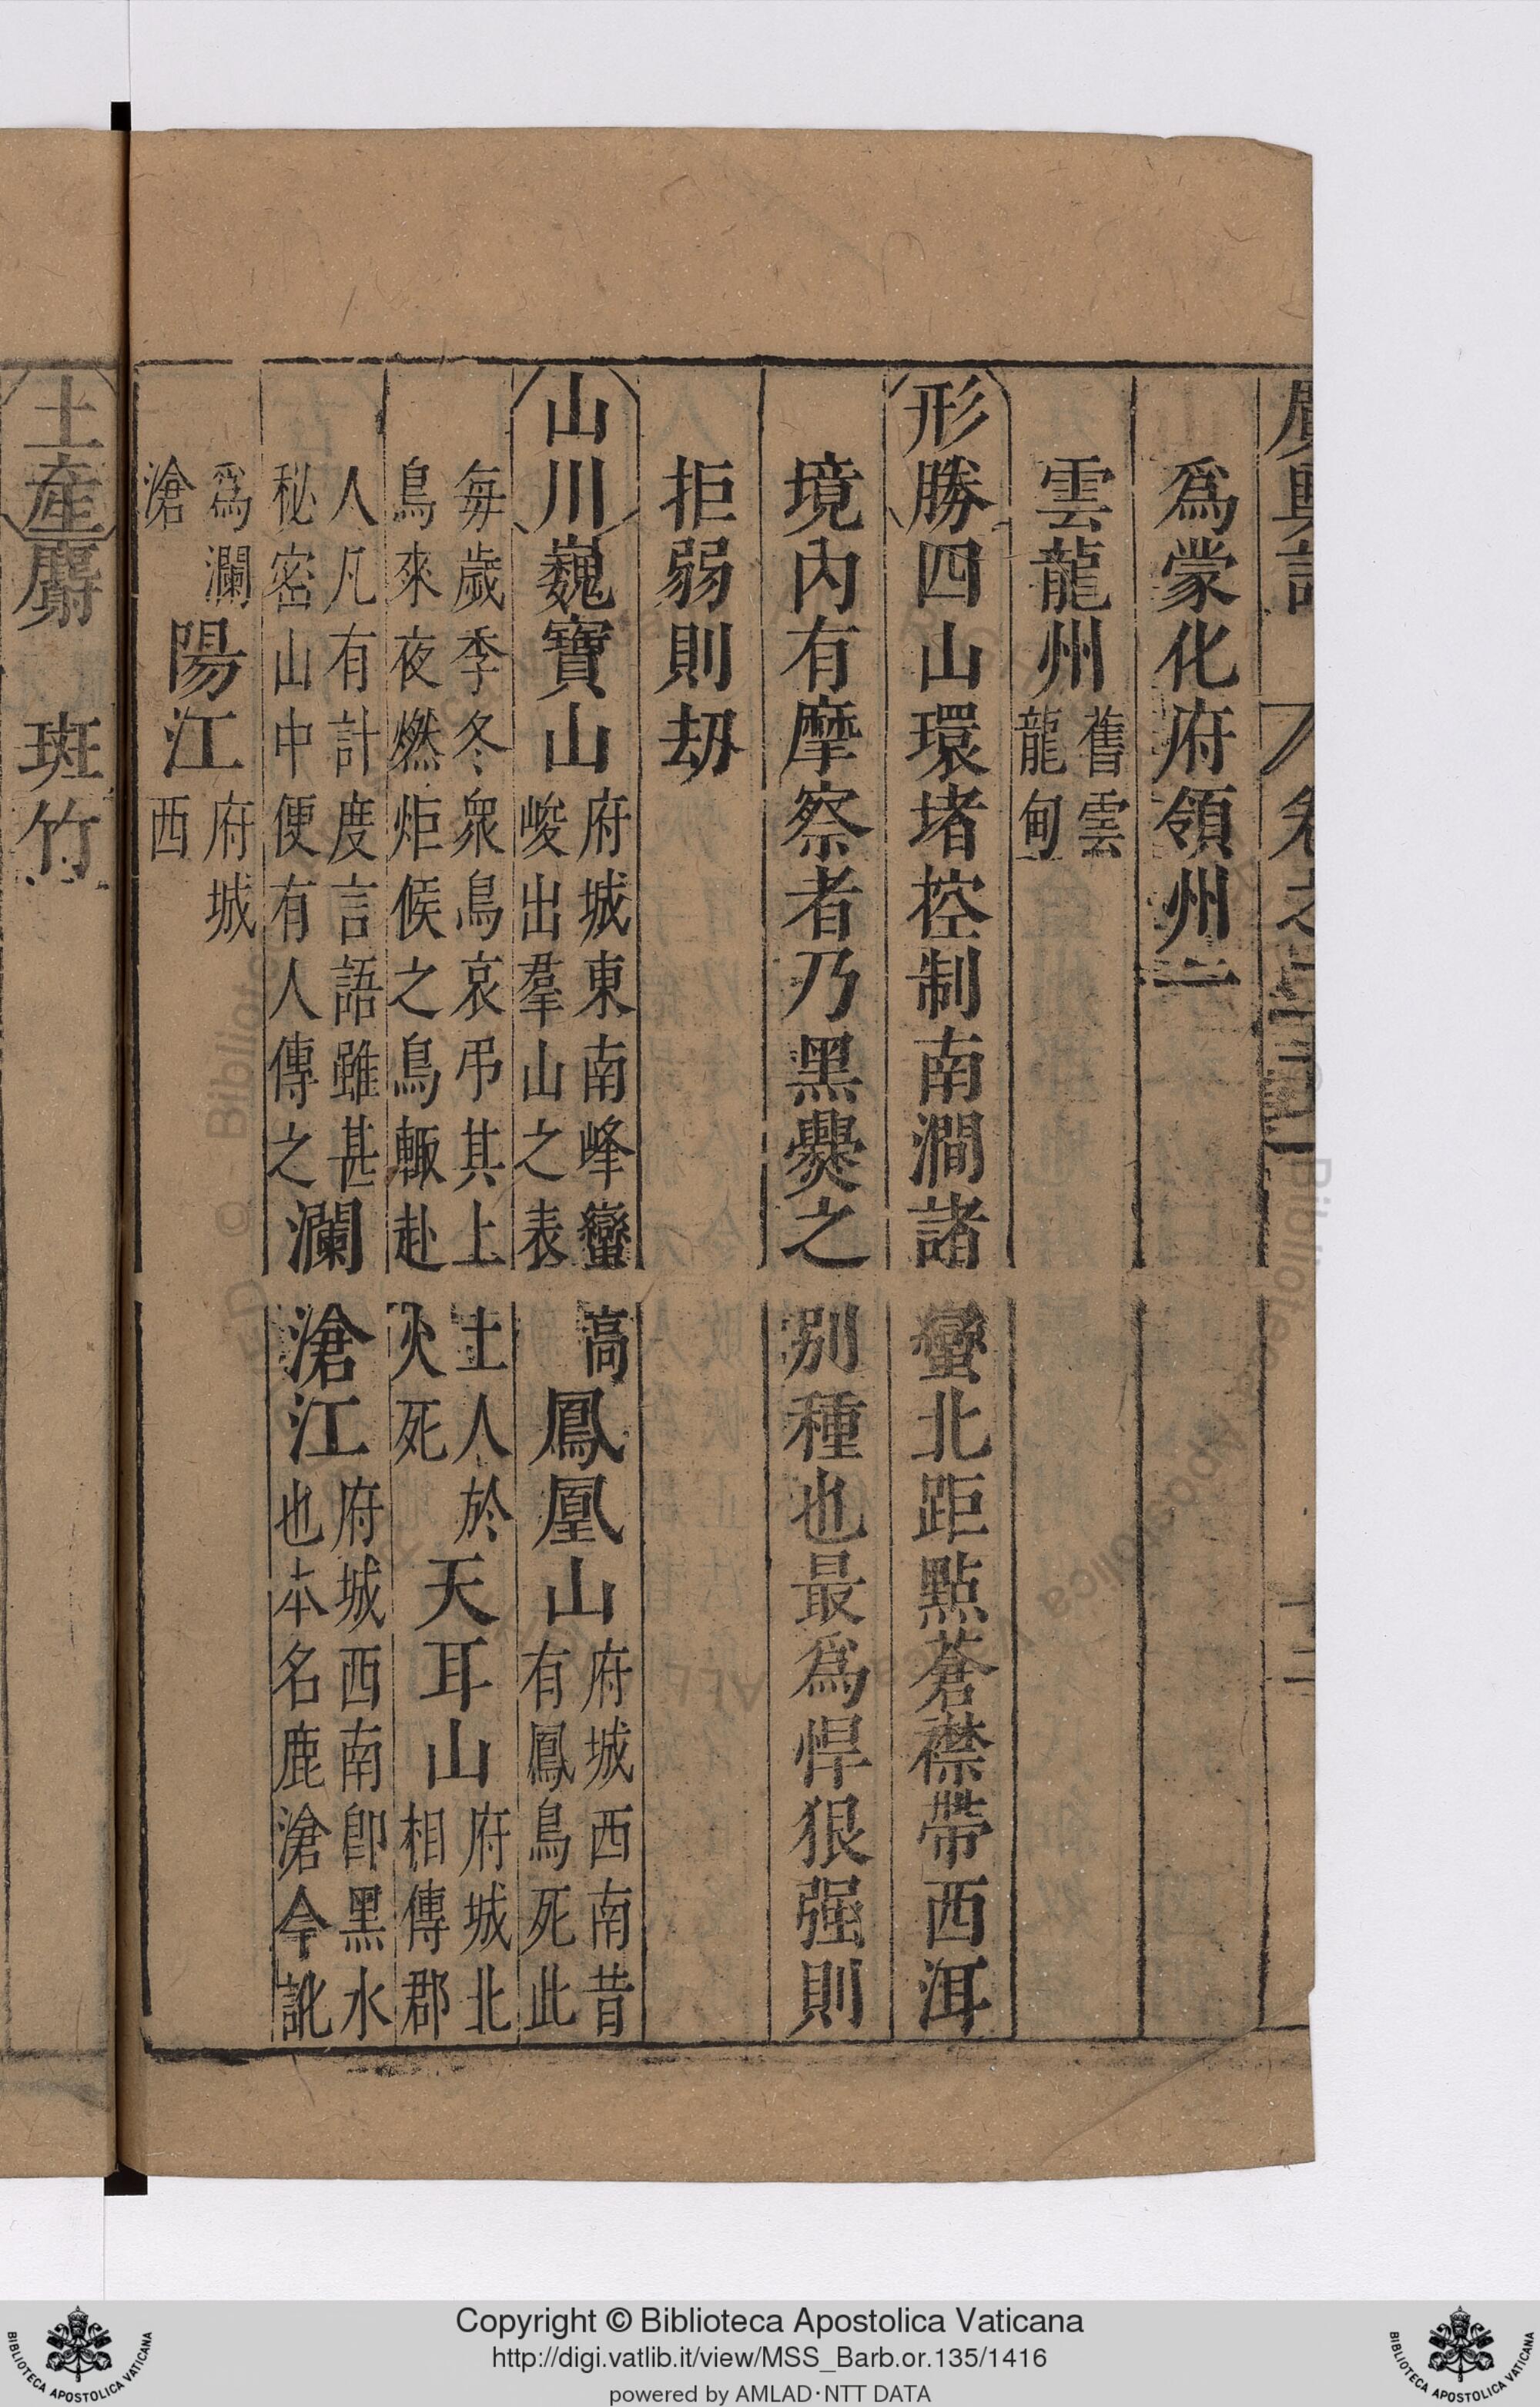 廣輿記 卷之二十一 十二
爲蒙化府領州一
雲龍州 舊雲龍甸
形勝 四山環堵控制南澗諸蠻北距點蒼襟帶西洱
境內有摩察者乃黑爨之別種也最爲悍狠强則
拒弱則刼
山川 巍寶山 府城東南峰巒高峻出羣山之表 鳳凰山 府城西南昔有鳳鳥死此
每歲季冬衆鳥哀弔其上土人於鳥來夜燃炬候之鳥輙赴火死 天耳山 府城北相傳郡
人凡有計度言語雖甚秘密山中便有人傳之 瀾滄江 府城西南卽黑水也本名鹿滄今訛
爲瀾滄 陽江 府城西
土產 麝 斑竹
Copyright © Biblioteca Apostolica Vaticana
http://digi.vatlib.it/view/MSS_Barb.or.135/1416
powered by AMLAD·NTT DATA
BIBLIOTECA APOSTOLICA VATICANA
BIBLIOTECA APOSTOLICA VATICANA